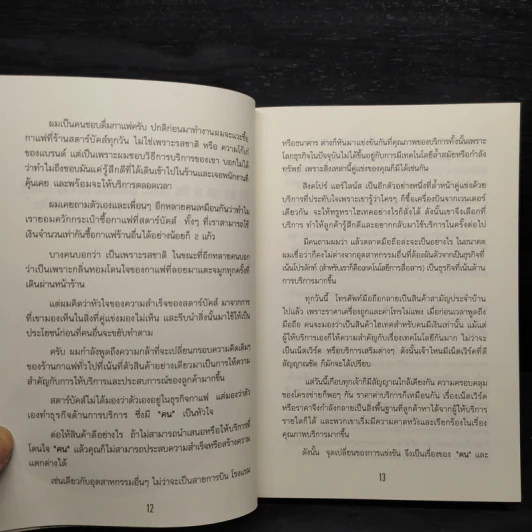 ผมเป็นคนชอบดื่มกาแฟครับ ปกติก่อนมาทำงานผมจะแวะซื้อ
กาแฟที่ร้านสตาร์บัคส์ทุกวัน ไม่ใช่เพราะรสชาติ หรือ ความโก้เก๋
ของแบรนด์ แต่เป็นเพราะผมชอบวิธีการบริการของเขา บอกไม่ได้
ว่าทำไมถึงชอบมันแค่รู้สึกดีที่ได้เดินเข้าไปในร้านและเจอพนักงานที่
คุ้นเคย และพร้อมจะให้บริการตลอดเวลา
ผมเคยถามตัวเองและเพื่อนๆ อีกหลายคนเหมือนกันว่าทำไม
เรายอมควักกระเป๋าซื้อกาแฟที่สตาร์บัคส์ ทั้งๆ ที่เราสามารถใช้
เงินจำนวนเท่ากันซื้อกาแฟร้านอื่นได้อย่างน้อยก็ 2 แก้ว
บางคนบอกว่า เป็นเพราะรสชาติ ในขณะที่อีกหลายคนบอก
ว่าเป็นเพราะกลิ่นหอมโดนใจของกาแฟที่ลอยมาแตะจมูกทุกครั้งที่
เดินผ่านหน้าร้าน
แต่ผมคิดว่าหัวใจของความสำเร็จของสตาร์บัคส์ มาจากการ
ที่เขามองเห็นในสิ่งที่คู่แข่งมองไม่เห็น และรีบนำสิ่งนั้นมาใช้ให้เป็น
ประโยชน์ก่อนที่คนอื่นจะขยับทำตาม
ครับ ผมกำลังพูดถึงความกล้าที่จะเปลี่ยนกรอบความคิดเดิมๆ
ของร้านกาแฟทั่วไปที่เน้นที่ตัวสินค้าอย่างเดียวมาเป็นการให้ความ
สำคัญกับการให้บริการและประสบการณ์ของลูกค้ามากขึ้น
สตาร์บัคส์ไม่ได้มองว่าตัวเองอยู่ในธุรกิจกาแฟ แต่มองว่าตัว
เองทำธุรกิจด้านการบริการ ซึ่งมี "คน" เป็นหัวใจ
ต่อให้สินค้าดีอย่างไร ถ้าไม่สามารถนำเสนอหรือให้บริการที่
โดนใจ "คน" แล้วคุณก็ไม่สามารถประสบความสำเร็จหรือสร้างความ
แตกต่างได้
เช่นเดียวกับอุตสาหกรรมอื่นๆ ไม่ว่าจะเป็นสายการบิน โรงแรม
12
หรือธนาคาร ต่างก็หันมาแข่งขันกันที่คุณภาพของบริการทั้งนั้นเพราะ
โลกธุรกิจในปัจจุบันไม่ได้ขึ้นอยู่กับการมีเทคโนโลยีล้ำสมัยหรือกำลัง
ทรัพย์ เพราะสิ่งเหล่านี้คู่แข่งของคุณก็มีได้เช่นกัน
สิงคโปร์ แอร์ไลน์ส เป็นอีกตัวอย่างหนึ่งที่ล้ำหน้าคู่แข่งด้วย
บริการที่ประทับใจเพราะเขารู้ว่าใครๆ ก็ซื้อเครื่องบินจากเวนเดอร์
เดียวกัน จะให้หรูหราไฮเทคอย่างไรก็ยังได้ ดังนั้นเขาจึงเลือกที่
บริการ ทำให้ลูกค้ารู้สึกดีและอยากกลับมาใช้บริการในครั้งต่อไป
มีคนถามผมว่า แล้วตลาดมือถือล่ะจะเป็นอย่างไร ในอนาคต
ผมเชื่อว่าก็คงไม่ต่างจากอุตสาหกรรมอื่นที่ต้องผันตัวจากเป็นธุรกิจที่
เน้นโปรดักท์ (สำหรับเราก็คือเทคโนโลยีการสื่อสาร) เป็นธุรกิจที่เน้นด้าน
การบริการมากขึ้น
ทุกวันนี้ โทรศัพท์มือถือกลายเป็นสินค้าสามัญประจำบ้าน
ไปแล้ว เพราะราคาเครื่องถูกและค่าโทรไม่แพง เมื่อก่อนเวลาพูดถึง
มือถือ คนจะมองว่าเป็นสินค้าไฮเทคสำหรับคนมีเงินเท่านั้น แม้แต่
ผู้ให้บริการเองก็ให้ความสำคัญกับเรื่องเทคโนโลยีกันมาก ไม่ว่าจะ
เป็นเน็ตเวิร์ค หรือบริการเสริมต่างๆ ดังนั้นเจ้าไหนมีเน็ตเวิร์คที่ดี
สัญญาณชัด ก็มักจะได้เปรียบ
แต่วันนี้เกือบทุกเจ้าก็มีสัญญาณใกล้เคียงกัน ความครอบคลุม
ของโครงข่ายก็พอๆ กัน ราคาค่าบริการก็เหมือนกัน เรื่องเน็ตเวิร์ค
หรือราคาจึงกำลังกลายเป็นสิ่งพื้นฐานที่ลูกค้าหาได้จากผู้ให้บริการ
รายใดก็ได้ และพวกเขาเริ่มมีความคาดหวังและเรียกร้องในเรื่อง
คุณภาพบริการมากขึ้น
ดังนั้น จุดเปลี่ยนของการแข่งขัน จึงเป็นเรื่องของ "คน" และ
13